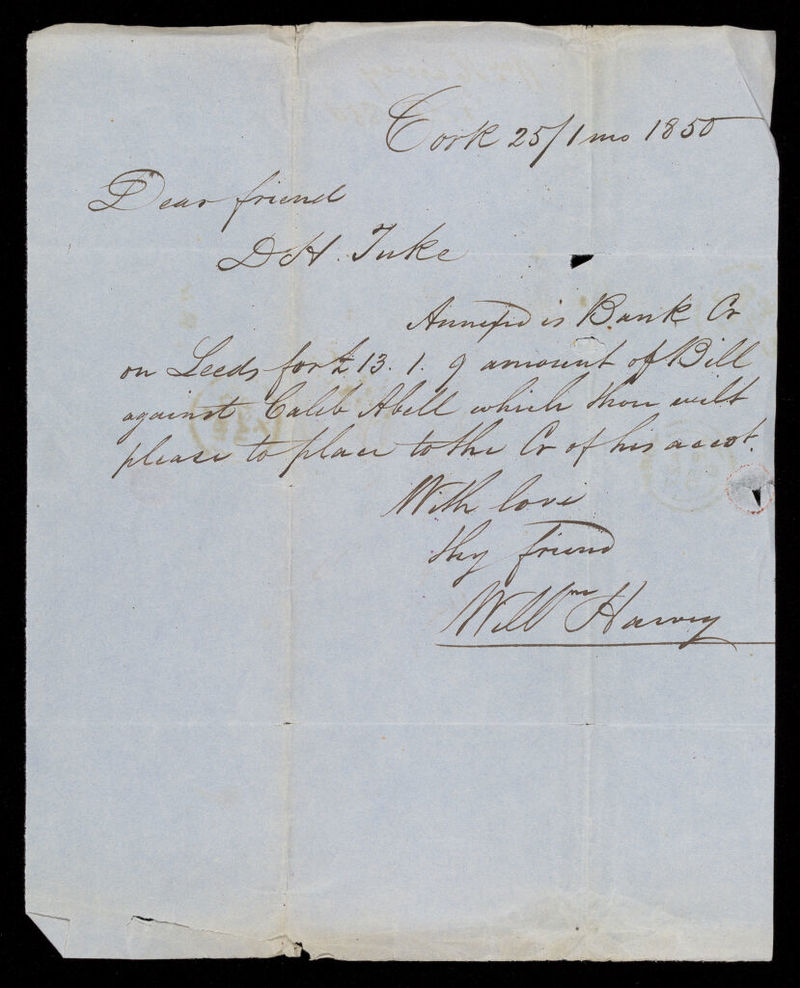 Cork 25/1 mo 1850
Dear friend
D H. Tuke
Annexed is Bank Cr
on Leeds for £ 13. 1. 9 amount of Bill
against Caleb Abell which thou wilt
please to place to the Cr of his accot.
With love
thy friend
Willm Harvey